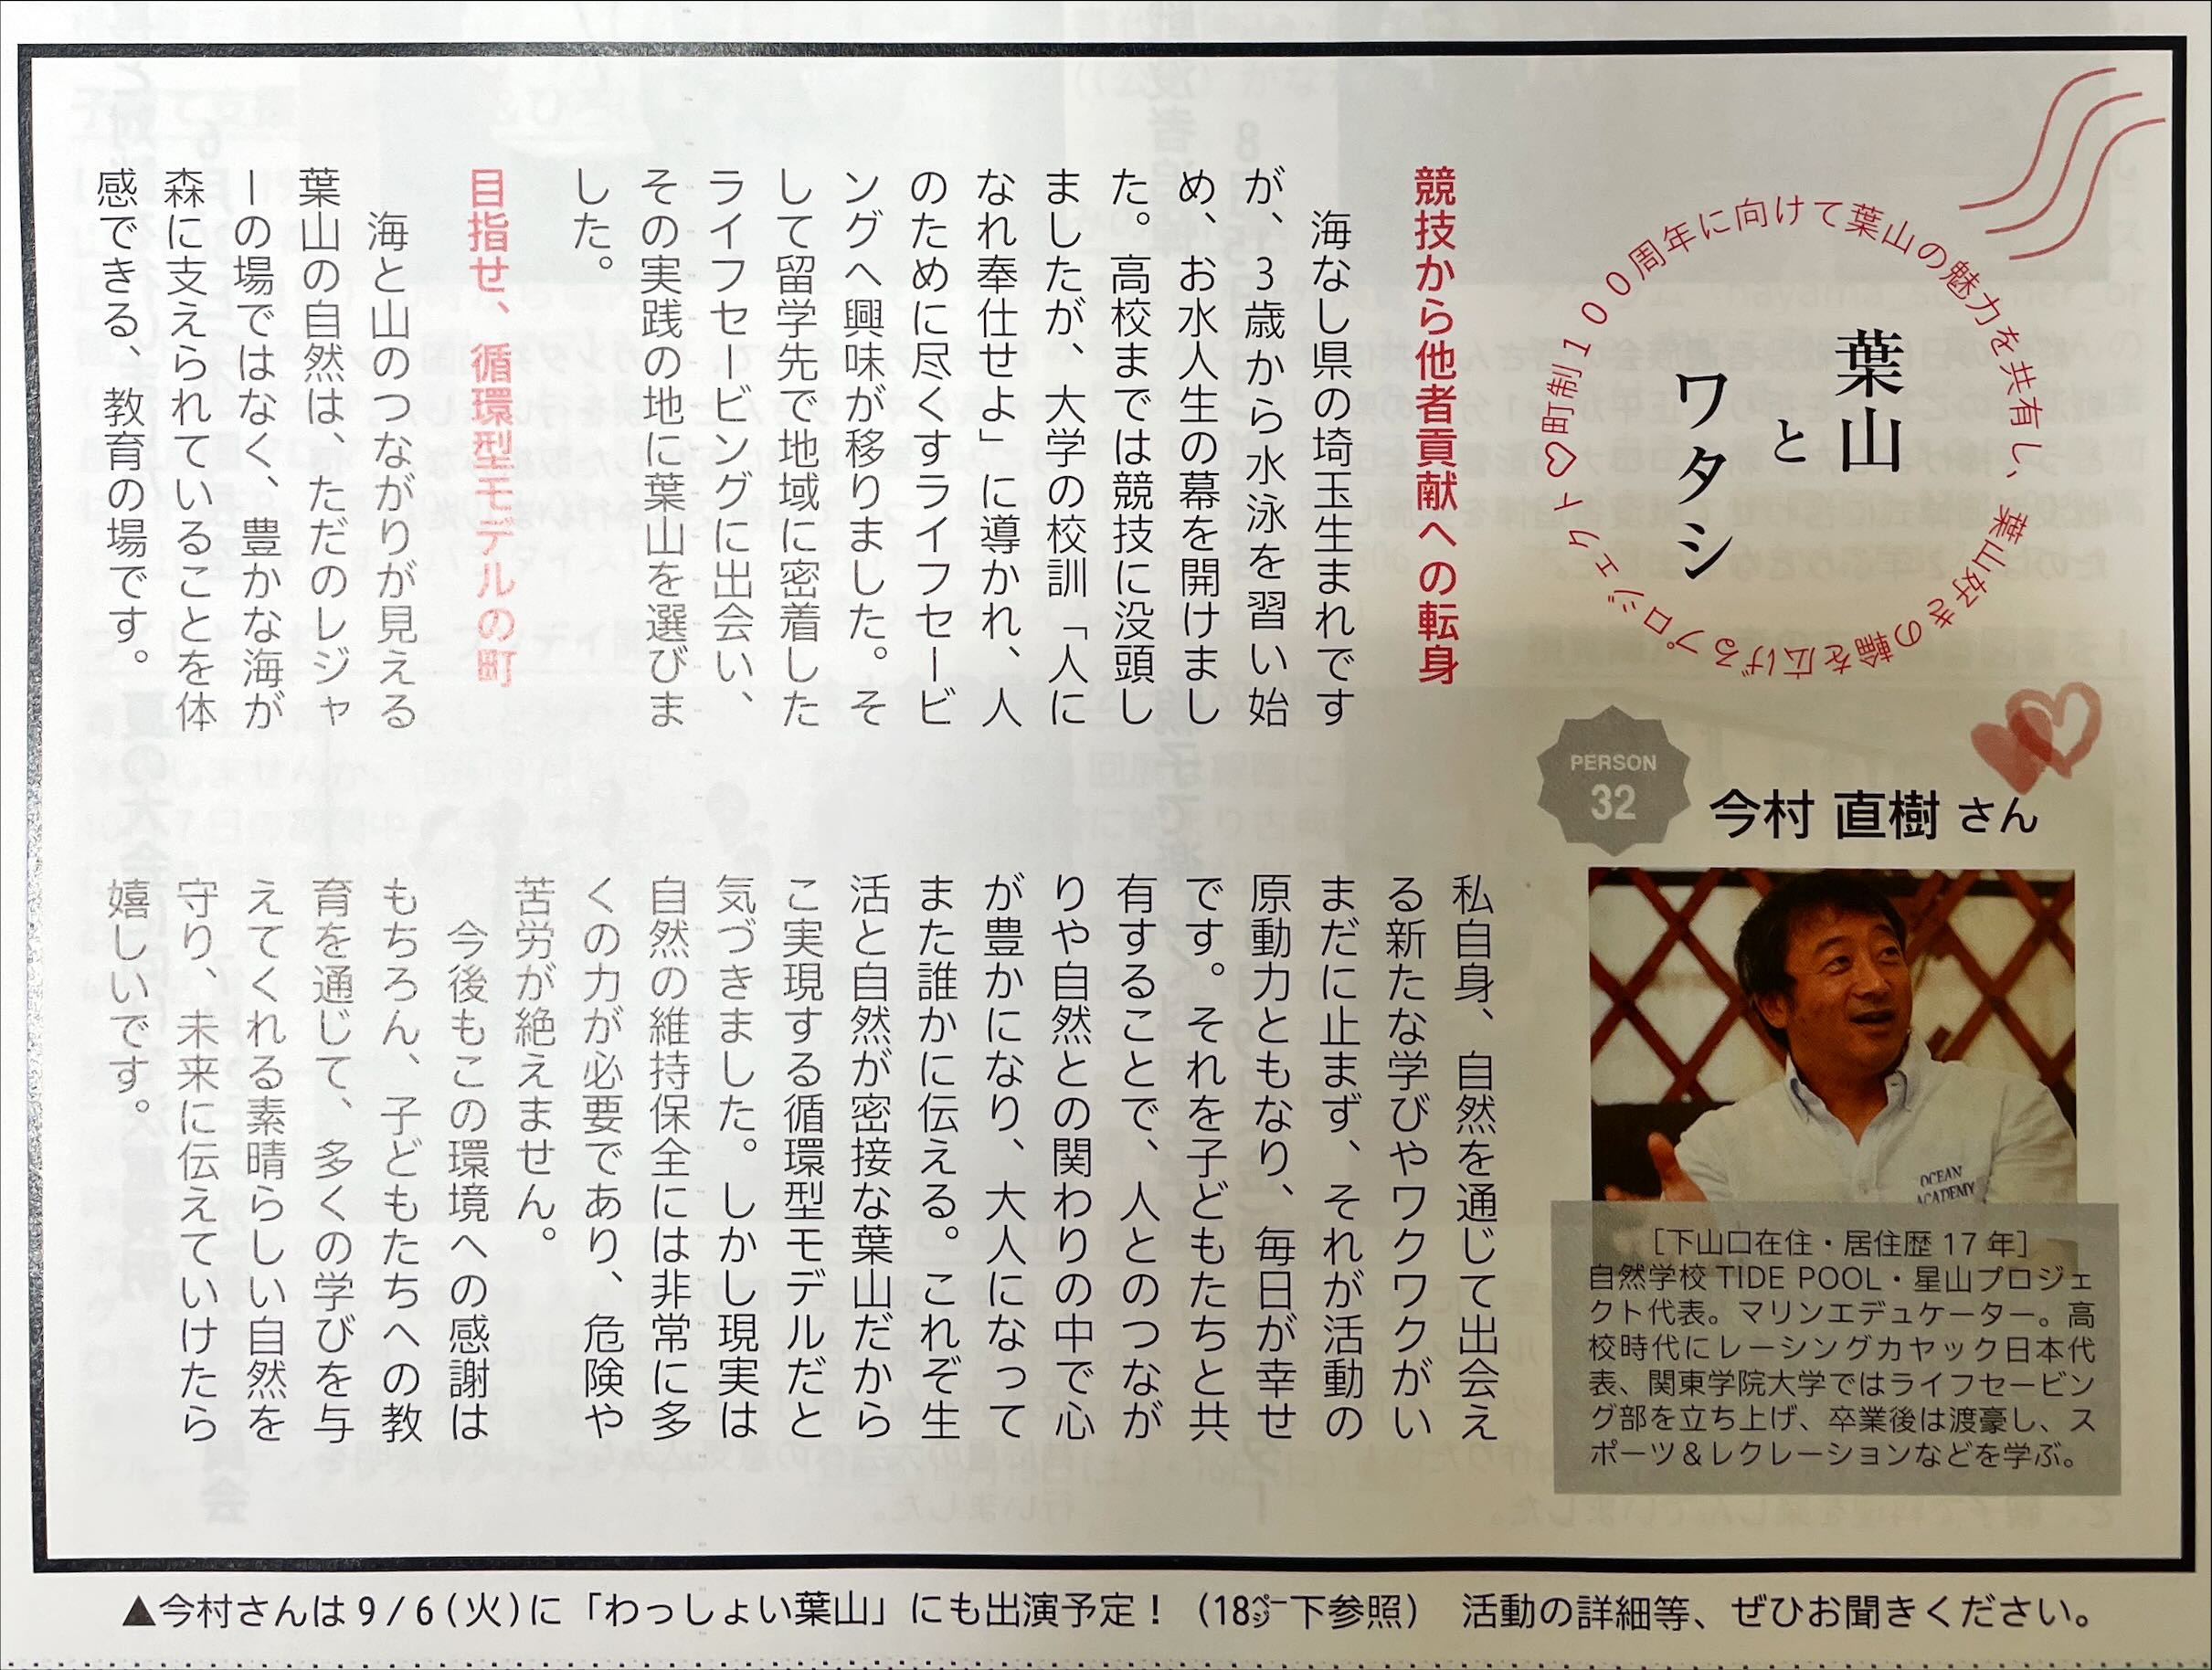 町制100周年に向けて葉山の魅力を共有し、葉山好きの輪を広げるプロジェクト♡
葉山
と
ワタシ
PERSON
32
今村 直樹 さん
OCEAN
ACADEMY
［下山口在住・居住歴 17 年］
自然学校 TIDE POOL・星山プロジェ
クト代表。マリンエデュケーター。高
校時代にレーシングカヤック日本代
表、関東学院大学ではライフセービン
グ部を立ち上げ、卒業後は渡豪し、ス
ポーツ＆レクレーションなどを学ぶ。
競技から他者貢献への転身
海なし県の埼玉生まれです
が、3歳から水泳を習い始
め、お水人生の幕を開けまし
た。高校までは競技に没頭し
ましたが、大学の校訓「人に
なれ奉仕せよ」に導かれ、人
のために尽くすライフセービ
ングへ興味が移りました。そ
して留学先で地域に密着した
ライフセービングに出会い、
その実践の地に葉山を選びま
した。
目指せ、循環型モデルの町
海と山のつながりが見える
葉山の自然は、ただのレジャ
ーの場ではなく、豊かな海が
森に支えられていることを体
感できる、教育の場です。
私自身、自然を通じて出会え
る新たな学びやワクワクがい
まだに止まず、それが活動の
原動力ともなり、毎日が幸せ
です。それを子どもたちと共
有することで、人とのつなが
りや自然との関わりの中で心
が豊かになり、大人になって
また誰かに伝える。これぞ生
活と自然が密接な葉山だから
こ実現する循環型モデルだと
気づきました。しかし現実は
自然の維持保全には非常に多
くの力が必要であり、危険や
苦労が絶えません。
今後もこの環境への感謝は
もちろん、子どもたちへの教
育を通じて、多くの学びを与
えてくれる素晴らしい自然を
守り、未来に伝えていけたら
嬉しいです。
▲今村さんは 9/6(火)に「わっしょい葉山」にも出演予定！（18㌻下参照） 活動の詳細等、ぜひお聞きください。